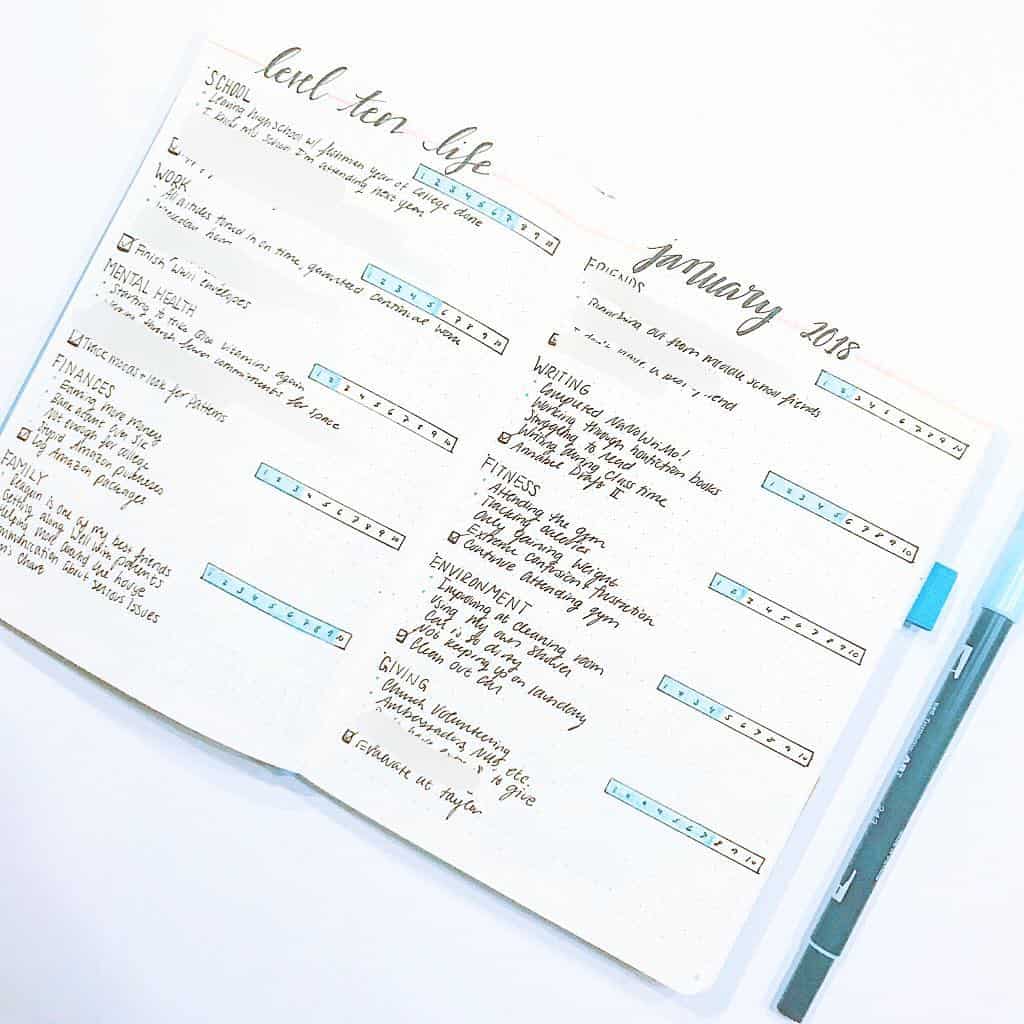 level ten life
SCHOOL
Leaving high school w/ freshman year of college done
I know no school I'm attending next year
1 2 3 4 5 6 7 8 9 10
WORK
All articles turned in on time, guaranteed continual work
1 2 3 4 5 6 7 8 9 10
Finish envelopes
MENTAL HEALTH
Starting to take vitamins again
commitments for space
1 2 3 4 5 6 7 8 9 10
Track moods + look for patterns
FINANCES
Earning more money
Not enough for college
Stupid Amazon purchases
Log Amazon packages
1 2 3 4 5 6 7 8 9 10
FAMILY
is one of my best friends
Getting along well with parents
Helping more around the house
communication about serious issues
share
1 2 3 4 5 6 7 8 9 10
january 2018
FRIENDS
Branching out from middle school friends
1 2 3 4 5 6 7 8 9 10
WRITING
Completed NaNoWriMo!
Working through nonfiction books
Struggling to read
Writing during class time
Annabelle Draft II
1 2 3 4 5 6 7 8 9 10
FITNESS
Attending the gym
Tracking calories
Only gaining weight
Extreme confusion + frustration
Continue attending gym
1 2 3 4 5 6 7 8 9 10
ENVIRONMENT
Improving at cleaning room
Using my own shower
Car is so dirty
Not keeping up on laundry
Clean out car
1 2 3 4 5 6 7 8 9 10
GIVING
Church Volunteering
Ambassadors, NHS, etc.
have to give
Evaluate at Taylor
1 2 3 4 5 6 7 8 9 10